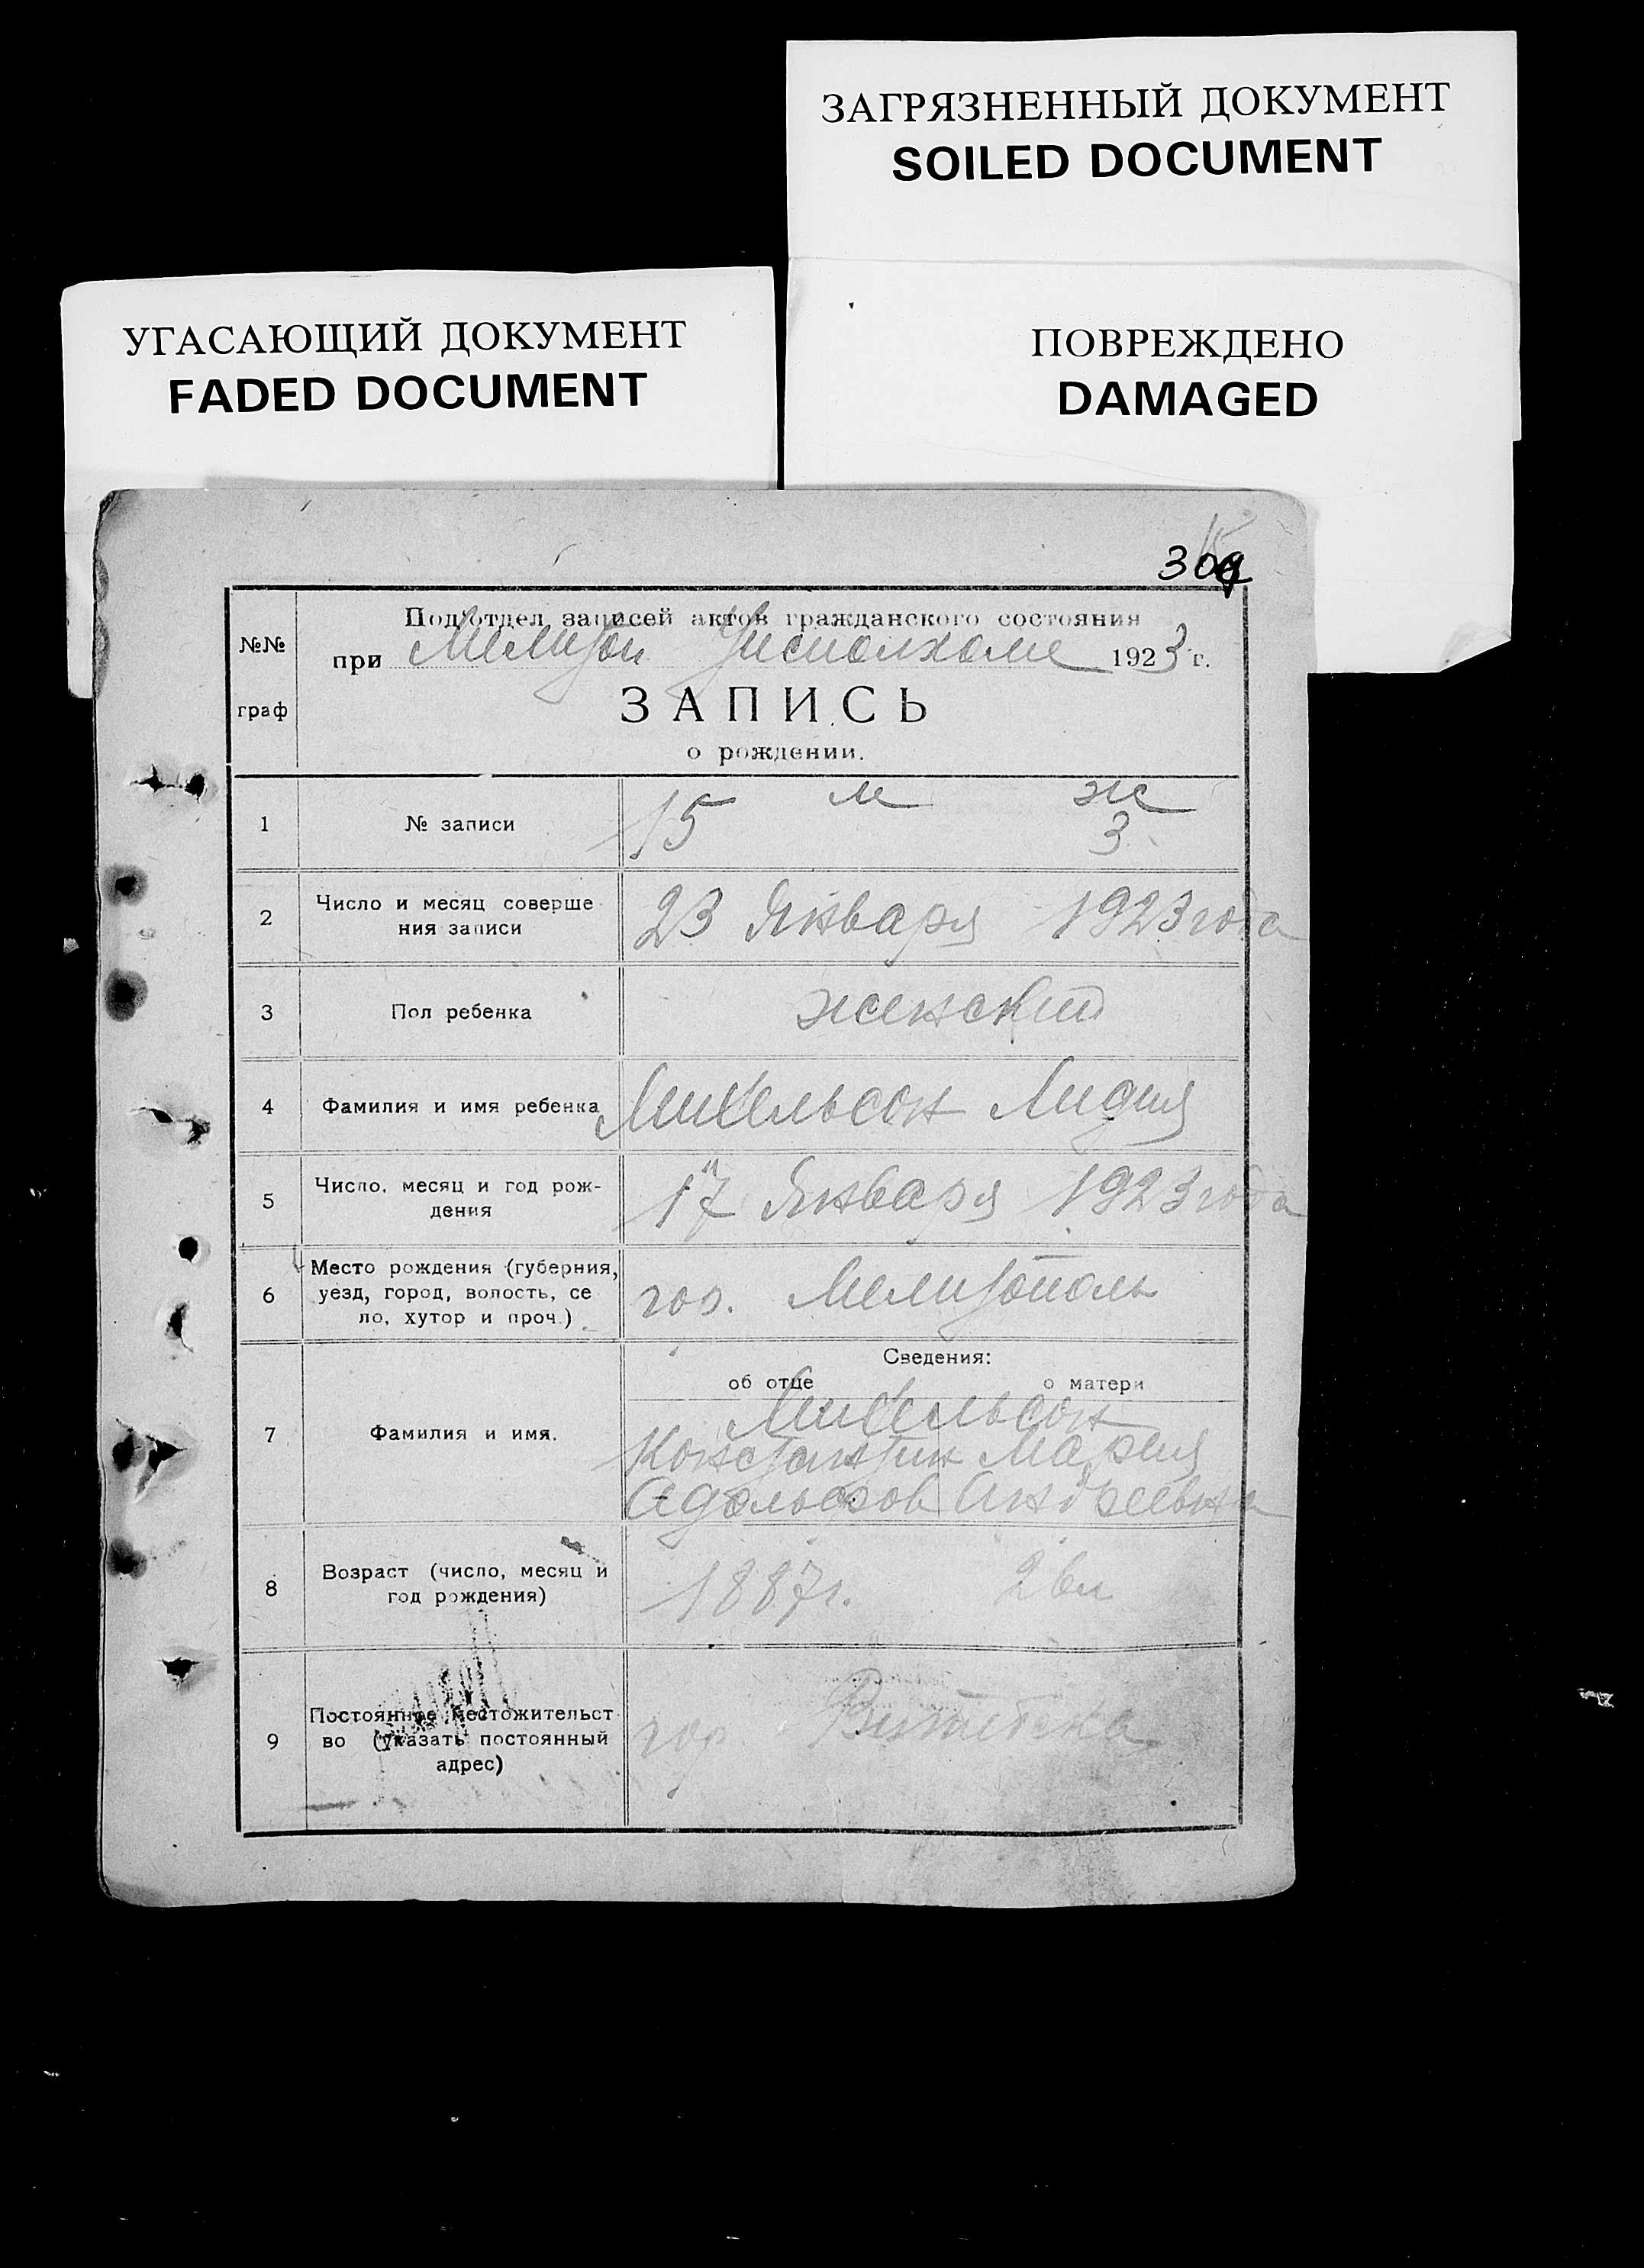 ЗАГРЯЗНЕННЫЙ ДОКУМЕНТ
SOILED DOCUMENT
УГАСАЮЩИЙ ДОКУМЕНТ
FADED DOCUMENT
ПОВРЕЖДЕНО
DAMAGED
15
№№
граф
Под'отдел записей актов гражданского состояния
при Мелитоп Уисполкоме 1923 г.
ЗАПИСЬ
о рождении.
1 № записи 15 м ж
3
2 Число и месяц соверше
ния записи 23 Января 1923 года
3 Пол ребенка женский
4 Фамилия и имя ребенка Михельсон Лидия
5 Число, месяц и год рож-
дения 17 Января 1923 года
6 Место рождения (губерния,
уезд, город, волость, се
ло, хутор и проч.) гор. Мелитополь
Сведения:
об отце о матери
7 Фамилия и имя. Михельсон
Константин Мария
Адольфов Андреевна
8 Возраст (число, месяц и
год рождения) 1887г.
9 Постоянное местожительст
во (указать постоянный
адрес) гор Витебска